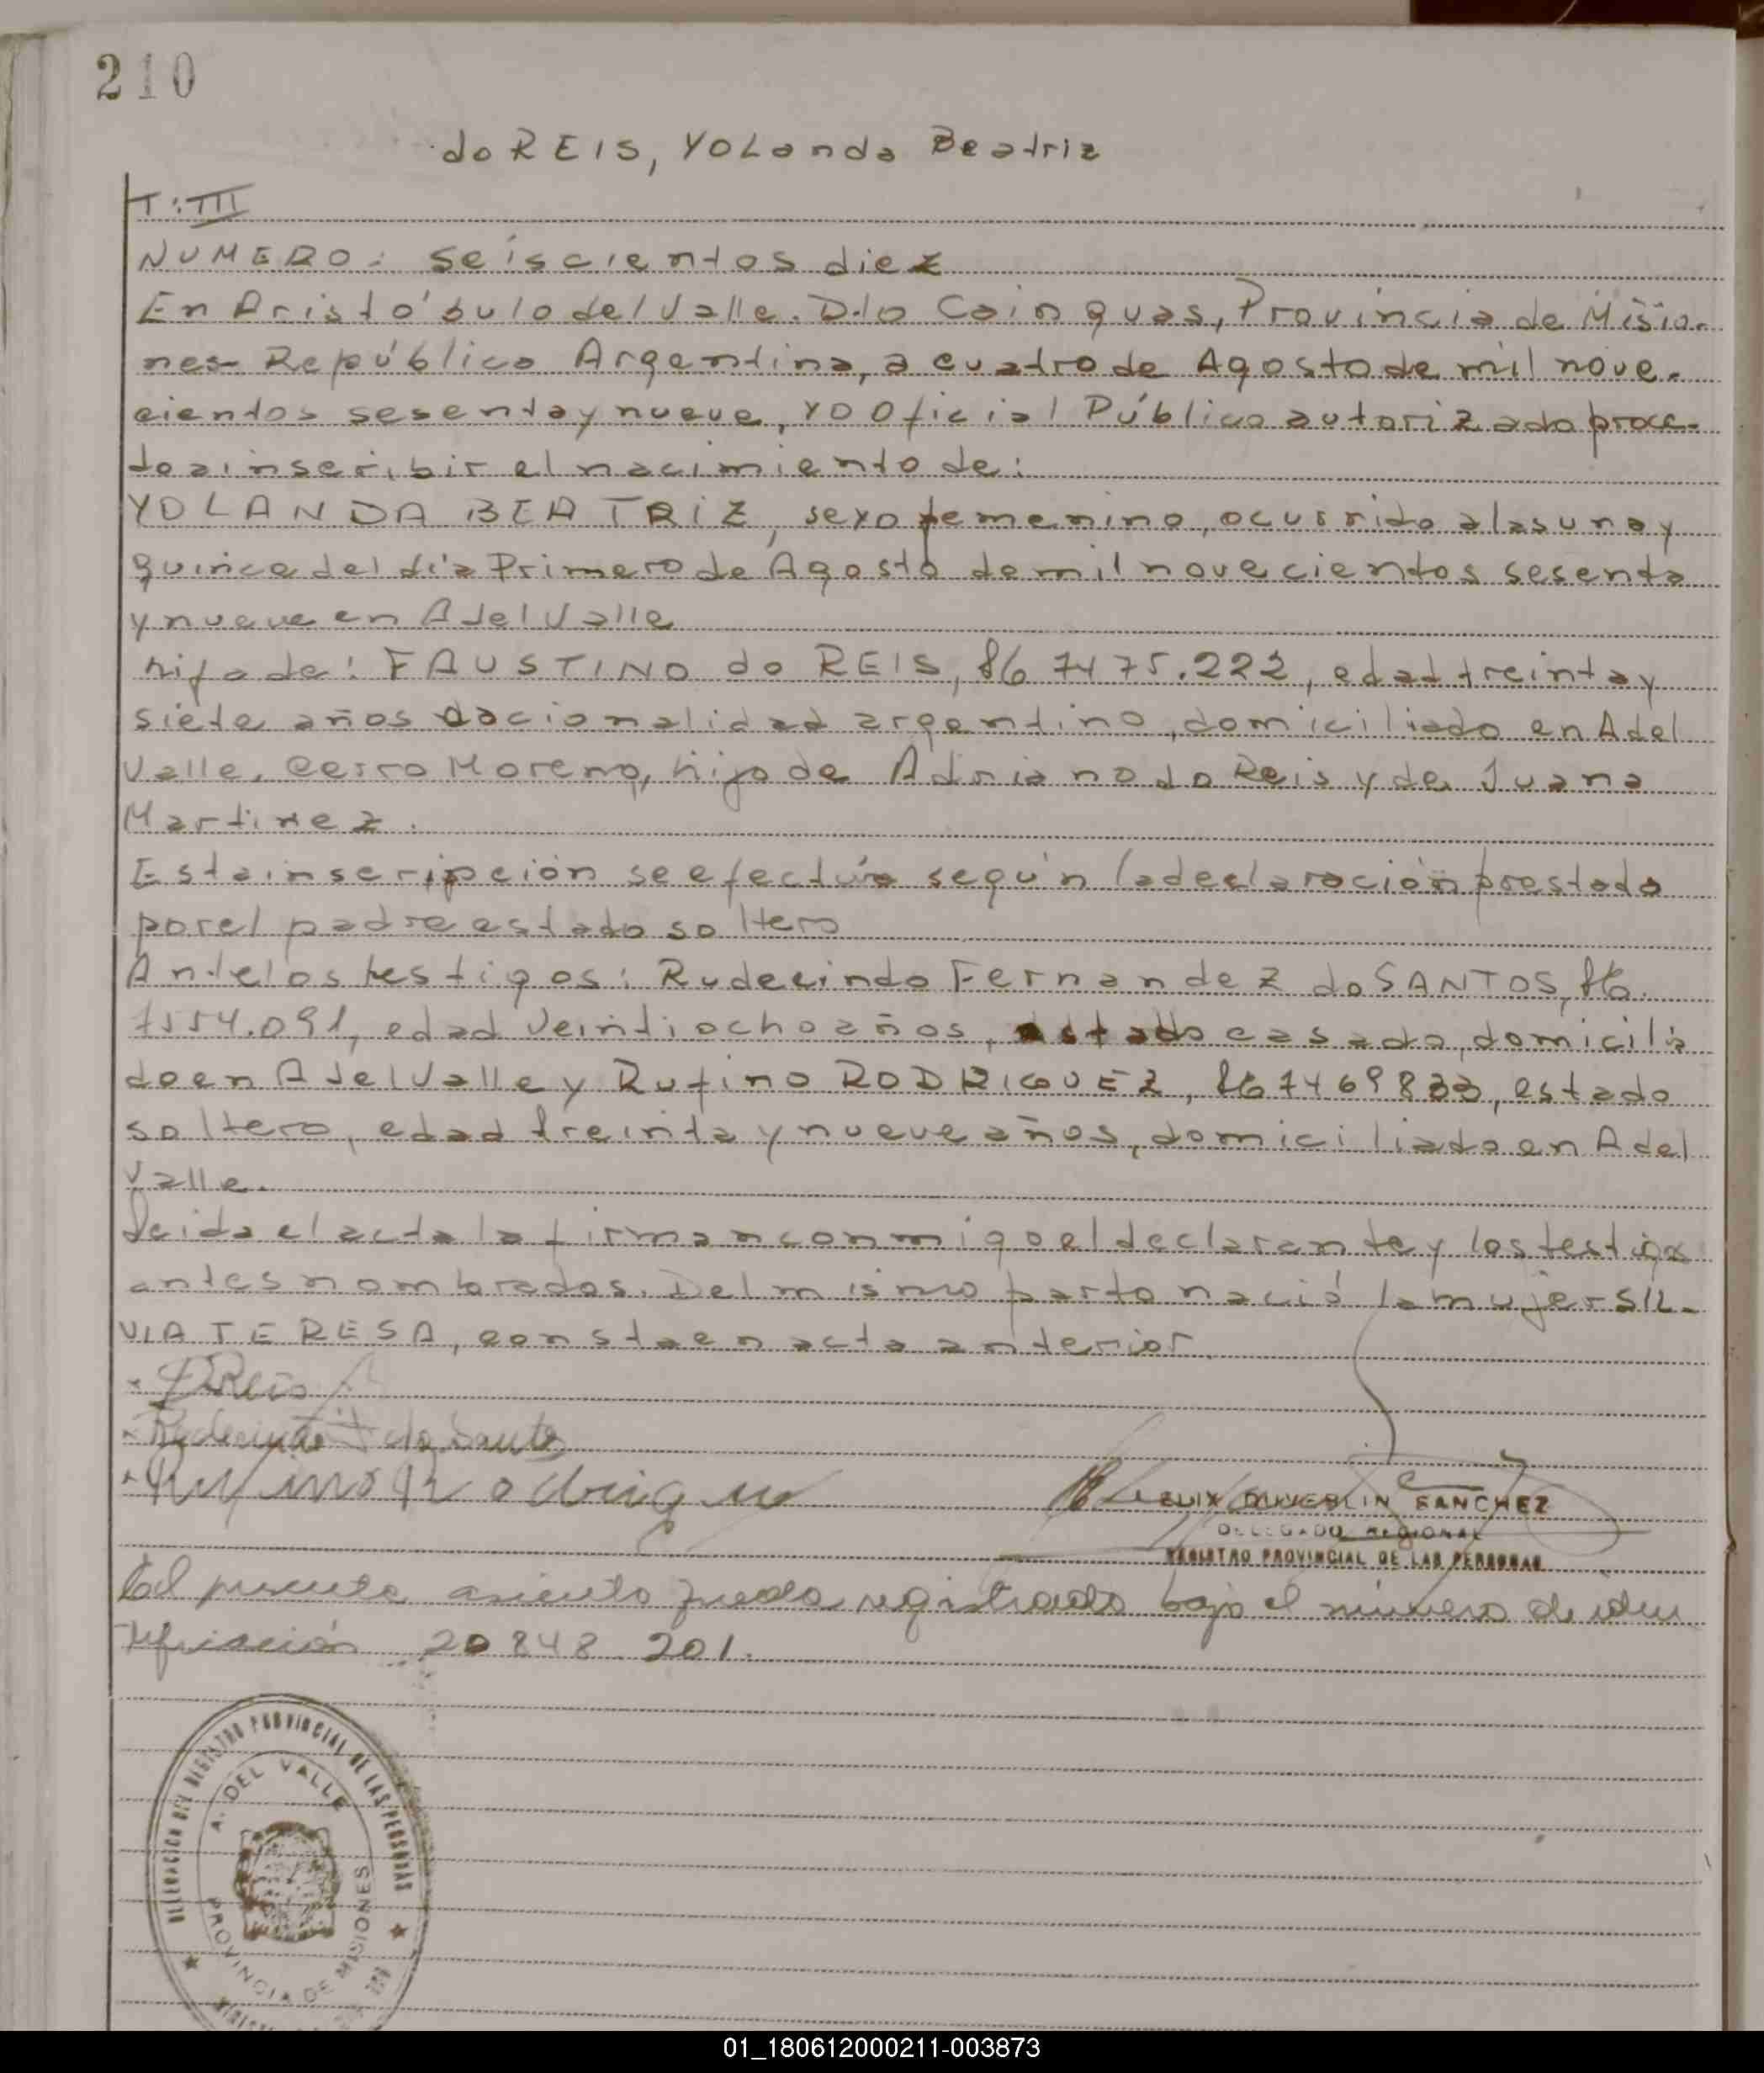 210
do REIS, YOLanda Beatriz
T: III
NUMERO: seiscientos diez
En Aristóbulo del Valle. Dto Cainguas, Provincia de Misio-
nes- República Argentina, a cuatro de Agosto de mil nove-
cientos sesenta y nueve, yo Oficial Público autorizado proce-
do a inscribir el nacimiento de:
YOLANDA BEATRIZ, sexo femenino, ocurrido a las una y
quince del día Primero de Agosto de mil novecientos sesenta
y nueve en A del Valle
hija de: FAUSTINO do REIS, 7475.222, edad treinta y
siete años nacionalidad argentino, domiciliado en A del
Valle, Cerro Moreno, hijo de Adriano do Reis y de Juana
Martinez.
Esta inscripción se efectúa según la declaración prestada
por el padre estado soltero
Ante los testigos: Rudecindo Fernandez do SANTOS,
7554.091, edad veintiocho años, estado casado, domicilia
do en A del Valle y Rufino RODRIGUEZ, 7469833, estado
soltero, edad treinta y nueve años, domiciliado en A del
Valle.
Leida el acta la firman conmigo el declarante y los testigos
antes nombrados. Del mismo parto nació la mujer SIL-
VIA TERESA, consta en acta anterior.
Reis
do Santos
Rufino Rodriguez
SANCHEZ
DELEGADO REGIONAL
REGISTRO PROVINCIAL DE LAS PERSONAS
El presente asiento queda registrado bajo el número de iden
tificación 20.848.201.
DELEGACION DEL REGISTRO PROVINCIAL DE LAS PERSONAS
A. DEL VALLE
PROVINCIA DE MISIONES
01_180612000211-003873